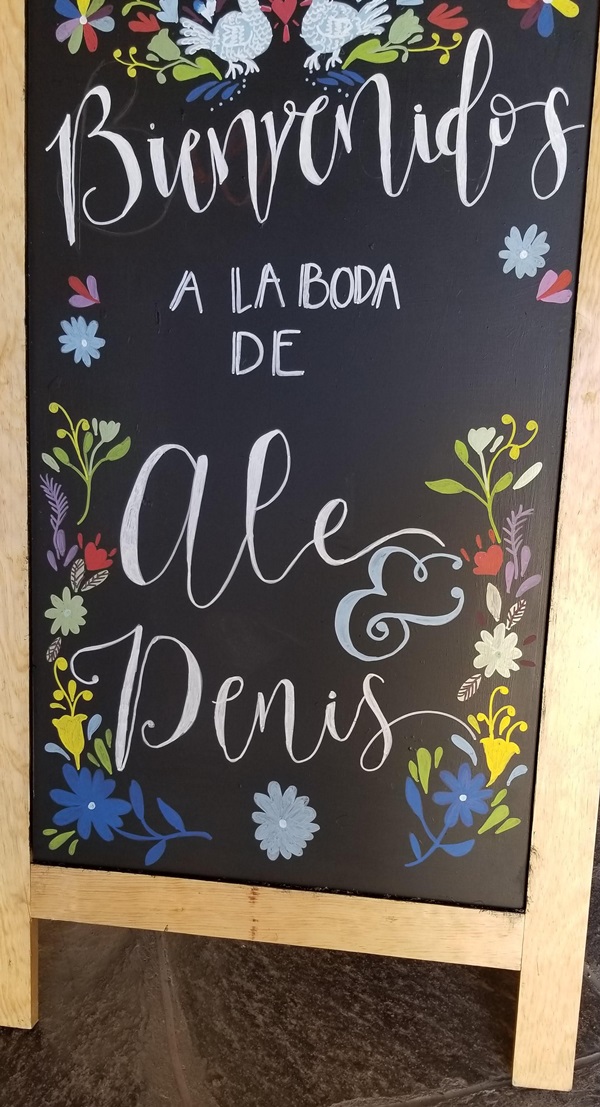 Bienvenidos
A LA BODA
DE
Ale
&
Denis